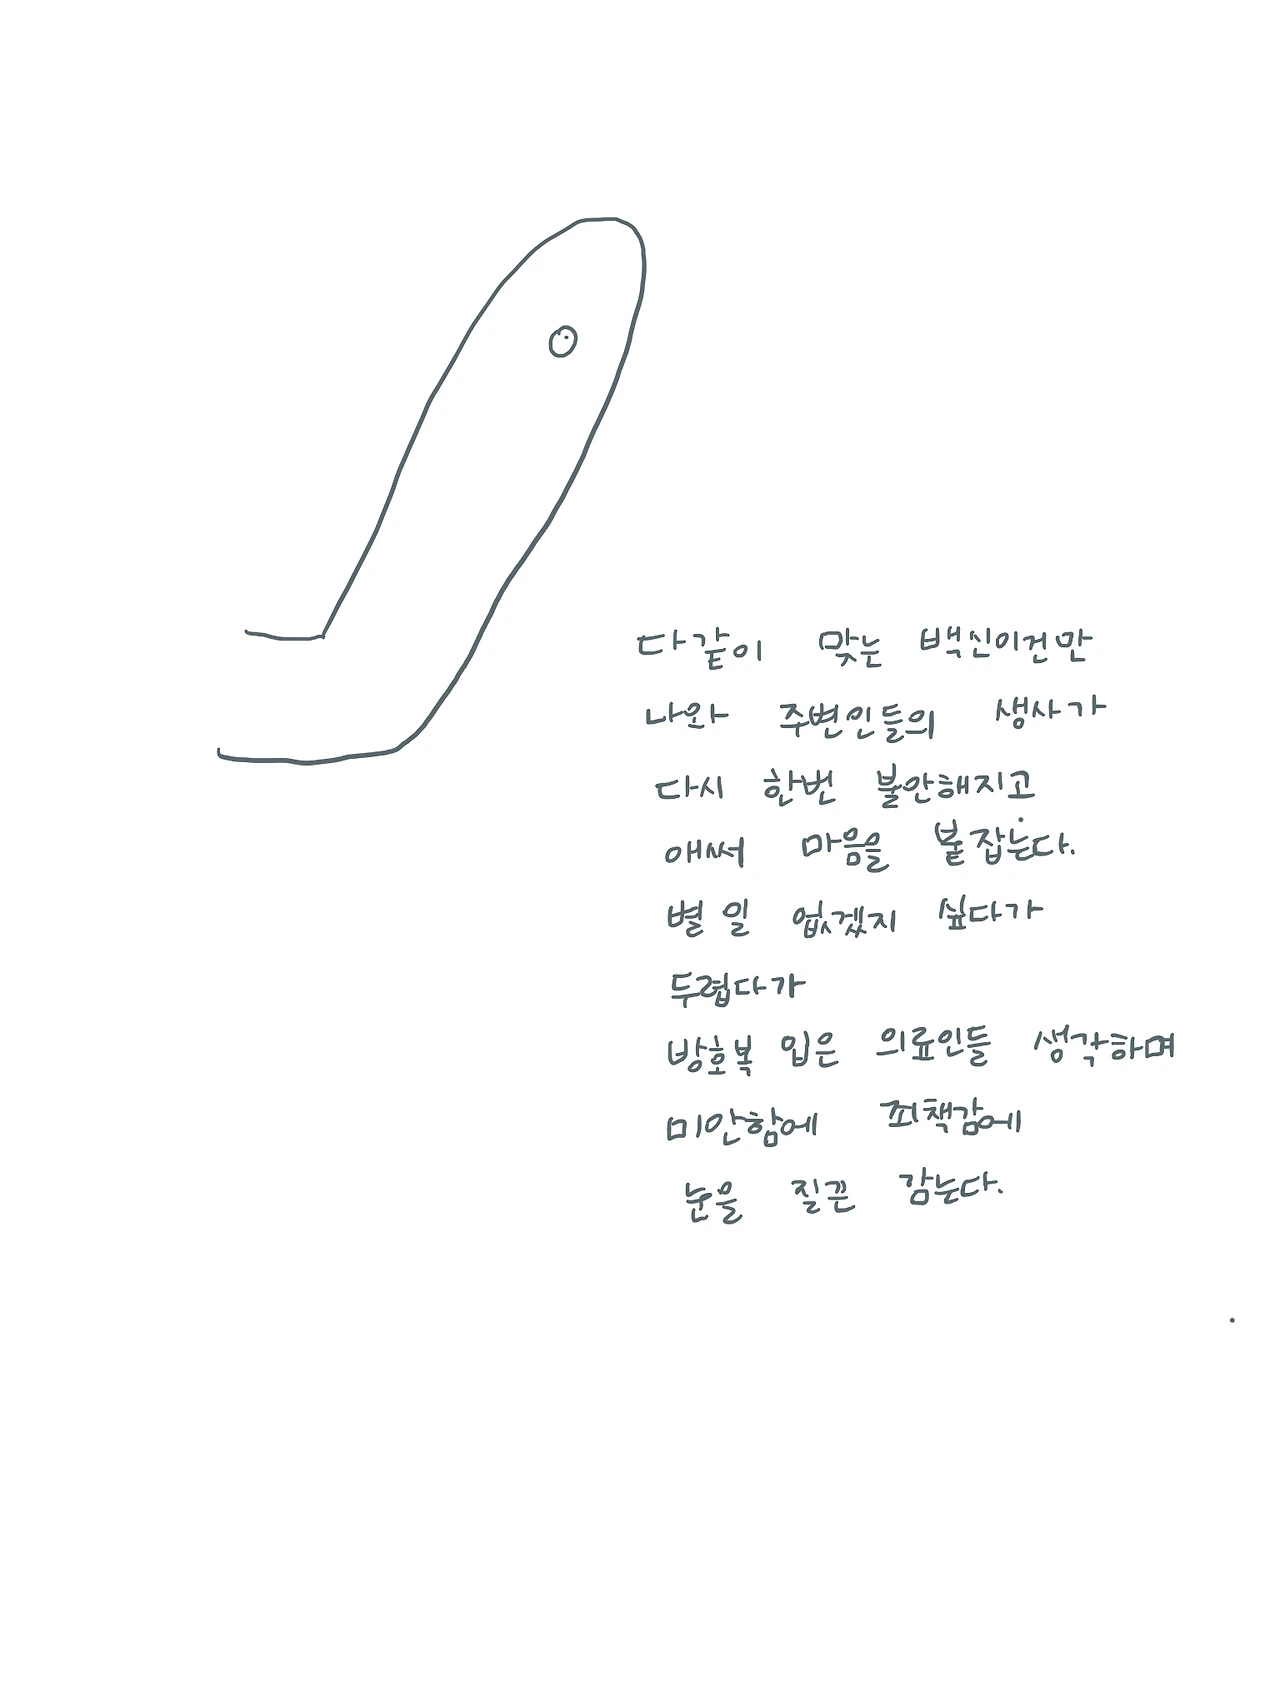 다같이 맞는 백신이건만
나와 주변인들의 생사가
다시 한번 불안해지고
애써 마음을 붙잡는다.
별 일 없겠지 싶다가
두렵다가
방호복 입은 의료인들 생각하며
미안함에 죄책감에
눈을 질끈 감는다.